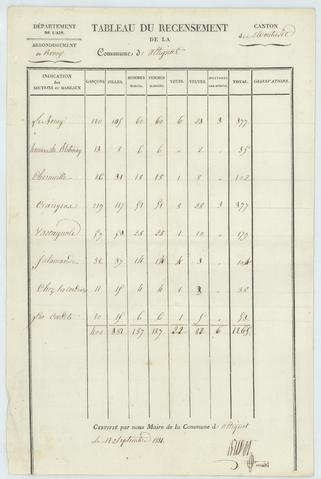 DÉPARTEMENT
DE L'AIN.
ARRONDISSEMENT
de Bourg
TABLEAU DU RECENSEMENT
DE LA
Commune d'attignat
CANTON
de Montrevel
INDICATION
des
SECTIONS et HAMEAUX
GARÇONS. FILLES. HOMMES MARIÉS. FEMMES MARIÉES. VEUFS. VEUVES. MILITAIRES TOTAL. OBSERVATIONS.
Le Bourg 120 105 60 60 6 23 3 377
13 8 6 6 " 2 " 35
26 31 18 18 1 8 " 102
Crangeac 119 117 51 51 8 28 3 377
57 53 28 28 1 10 " 179
Salamandre 32 37 14 14 4 3 " 104
11 15 4 4 1 3 " 38
20 15 6 6 1 5 " 53
400 381 187 187 22 82 6 1265
CERTIFIÉ par nous Maire de la Commune d'attignat
Le 12 Septembre